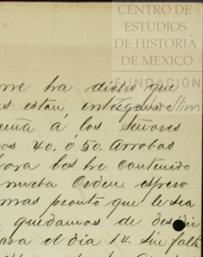 CENTRO DE
ESTUDIOS
DE HISTORIA
DE MEXICO
me ha dicho que
FUNDACIÓN
as estan intregando
á los Señores
os 40. ó 50. Arrobas
hora los he contenido
nueva Orden, espero
mas pronto que le sea
quedamos de decidir
para el dia 14. sin falta